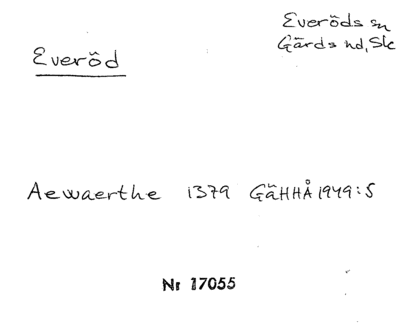 Everöd
Everöds sn
Gärds hd, Sk
Aewaerthe 1379 GäHHÅ 1949:5
Nr 17055